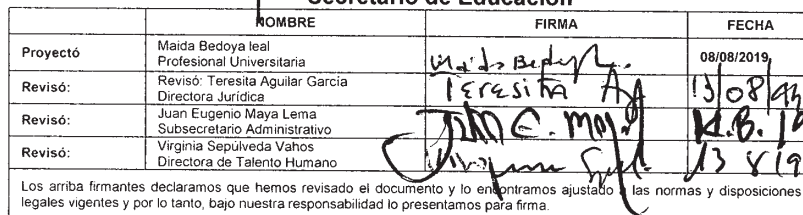 Secretario de Educación
NOMBRE FIRMA FECHA
Proyectó Maida Bedoya leal
Profesional Universitaria Maida Bedoya 08/08/2019
Revisó: Revisó: Teresita Aguilar García
Directora Jurídica Teresita 13/08/
Revisó: Juan Eugenio Maya Lema
Subsecretario Administrativo Juan E. Maya
Revisó: Virginia Sepúlveda Vahos
Directora de Talento Humano 13 8 19
Los arriba firmantes declaramos que hemos revisado el documento y lo encontramos ajustado a las normas y disposiciones
legales vigentes y por lo tanto, bajo nuestra responsabilidad lo presentamos para firma.